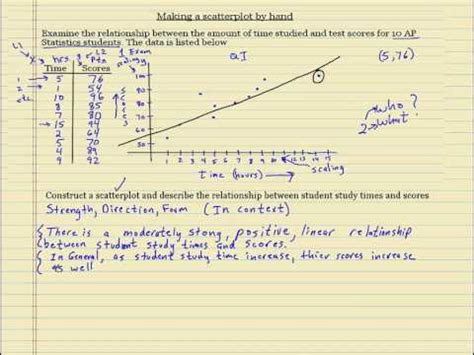 Making a scatterplot by hand
Examine the relationship between the amount of time studied and test scores for 10 AP
Statistics students. The data is listed below
L1 L2 1 Exam
x hrs. Ptn
Time Scores
1 5 76
2 1 54
etc. 10 96
8 85
7 80
15 94
2 64
5 70
4 89
9 92
QI
(5,76)
100
90
80
70
60
50
scores
1 2 3 4 5 6 7 8 9 10 11 12 13 14 15
scaling
Time (hours)
who?
2 what?
Construct a scatterplot and describe the relationship between student study times and scores
Strength, Direction, Form (In context)
There is a moderately stong, positive, linear relationship
between student study times and scores.
In General, as student study time increase, thier scores increase
as well